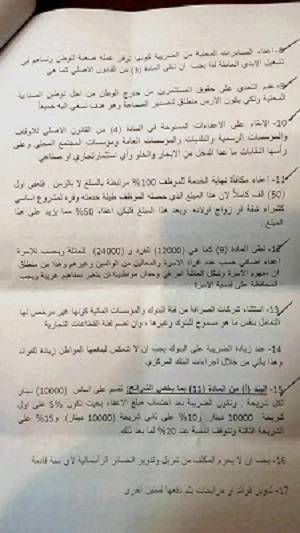 8- اعفاء الصادرات المحلية من الضريبة كونها توفر عملة صعبة للوطن وتساهم في
تشغيل الايدي العاملة لذا يجب ان تبقى المادة (3) من القانون الاصلي كما هي
9- عدم التعدي على حقوق المستثمرين من خارج الوطن من اجل توطين الصناعة
ولكي يكون الاردن منطلق لتصدير الصناعة وهو هدف نسعى اليه جميعاً
10- الابقاء على الاعفاءات الممنوحة في المادة (4) من القانون الاصلي للاوقاف
والمؤسسات الرسمية والبلديات والمؤسسات العامة ومؤسسات المجتمع المحلي وعلى
رأسها النقابات ما عدا الدخل من الايجار والخلو وأي استثمار تجاري او صناعي
11- اعفاء مكافأة نهاية الخدمة للموظف 100% مرتبطة بالمبلغ لا بالزمن . فتعفى اول
(50) الف كاملاً لان هذا المبلغ الذي حصله الموظف طيلة خدمته وفره لمشروع اساسي
كشراء شقة او زواج اولاده وبعد هذا المبلغ فليكن اعفاء 50% مما يزيد على هذا
المبلغ .
12- تبقى المادة (9) كما هي (12000) للفرد و (24000) للعائلة ويحسب للاسرة
اعفاء اضافي حسب عدد افراد الاسرة والمعالين من الوالدين وغيرهم وهذا من منطلق
ان مفهوم الاسرة وشكل العائلة امر في وجدان مواطنينا لن يتغير بمفاهيم غربية ويجب
المحافظة على قدسية الاسرة
13- استثناء شركات الصرافة من فئة البنوك والمؤسسات المالية كونها غير مرخص لها
التعامل بنفس ما هو مسموح للبنوك وغيرها ، وان تضم لفئة القطاعات التجارية
14- عند زيادة الضريبة على البنوك يجب ان لا تنعكس ليدفعها المواطن زيادة للفوائد
وهذا يأتي من خلال اجراءات البنك المركزي
15- البند (أ) من المادة (11) بما يخص الشرائح) تقسم على اساس (10000) دينار
لكل شريحة . وتكون الضريبة بعد احتساب مبلغ الاعفاء بحيث تكون 5% على اول
شريحة 10000 دينار . و10% على ثاني شريحة (10000 دينار) . و15% على
الشريحة الثالثة وتتوقف النسبة عند 20% لما بعد ذلك.
16- يجب ان لا يحرم المكلف من تنزيل وتدوير الخسائر الرأسمالية لأي سنة قادمة
17- تدوير فوائد او مرابحات يتم دفعها لسنين اخرى